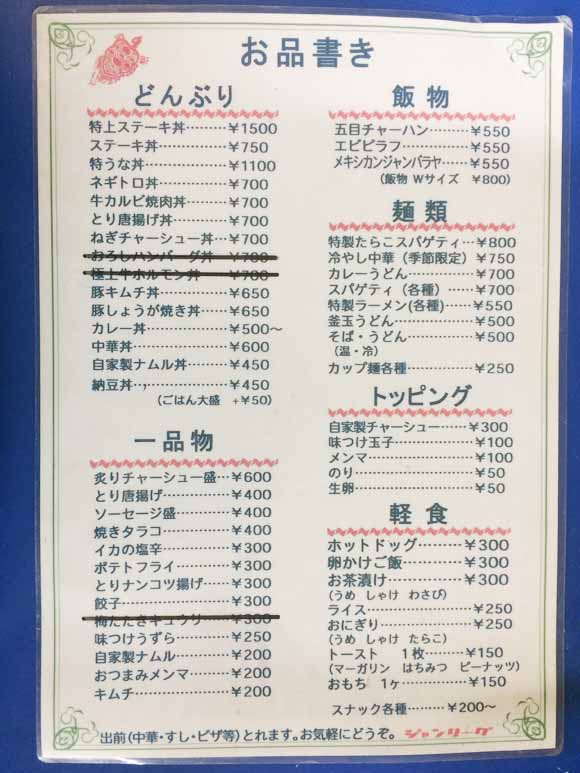 お品書き
どんぶり
特上ステーキ丼………¥1500
ステーキ丼……………¥750
特うな丼………………¥1100
ネギトロ丼……………¥700
牛カルビ焼肉丼………¥700
とり唐揚げ丼…………¥700
ねぎチャーシュー丼…¥700
おろしハンバーグ丼 ¥700
極上牛ホルモン丼……¥700
豚キムチ丼……………¥650
豚しょうが焼き丼……¥650
カレー丼………………¥500〜
中華丼…………………¥600
自家製ナムル丼………¥450
納豆丼…………………¥450
(ごはん大盛 +¥50)
一品物
炙りチャーシュー盛…¥600
とり唐揚げ……………¥400
ソーセージ盛…………¥400
焼きタラコ……………¥400
イカの塩辛……………¥300
ポテトフライ…………¥300
とりナンコツ揚げ……¥300
餃子……………………¥300
梅たたきキュウリ……¥300
味つけうずら…………¥250
自家製ナムル…………¥200
おつまみメンマ………¥200
キムチ…………………¥200
飯物
五目チャーハン………¥550
エビピラフ……………¥550
メキシカンジャンバラヤ……¥550
(飯物 Wサイズ ¥800)
麺類
特製たらこスパゲティ…¥800
冷やし中華(季節限定)¥750
カレーうどん…………¥700
スパゲティ(各種)……¥700
特製ラーメン(各種)……¥550
釜玉うどん……………¥500
そば・うどん…………¥500
(温・冷)
カップ麺各種…………¥250
トッピング
自家製チャーシュー…¥300
味つけ玉子……………¥100
メンマ…………………¥100
のり……………………¥50
生卵……………………¥50
軽食
ホットドッグ…………¥300
卵かけご飯……………¥300
お茶漬け………………¥300
(うめ しゃけ わさび)
ライス…………………¥250
おにぎり………………¥250
(うめ しゃけ たらこ)
トースト 1枚…………¥150
(マーガリン はちみつ ピーナッツ)
おもち 1ヶ……………¥150
スナック各種…………¥200〜
出前(中華・すし・ピザ等)とれます。お気軽にどうぞ。 ジャンリーグ